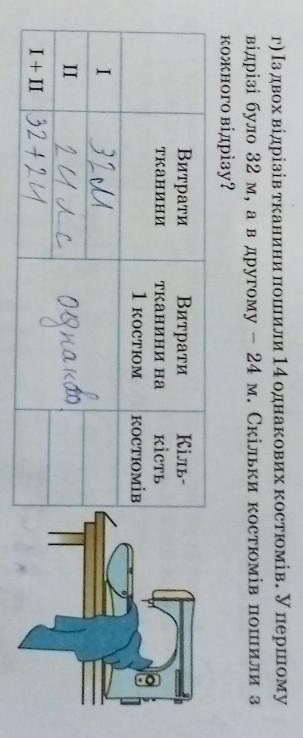 г) Із двох відрізів тканини пошили 14 однакових костюмів. У першому
відрізі було 32 м, а в другому – 24 м. Скільки костюмів пошили з
кожного відрізу?
Витрати тканини
Витрати тканини на 1 костюм
Кіль-
кість
костюмів
I
32 м
II
24
однаково
I + II
32+24